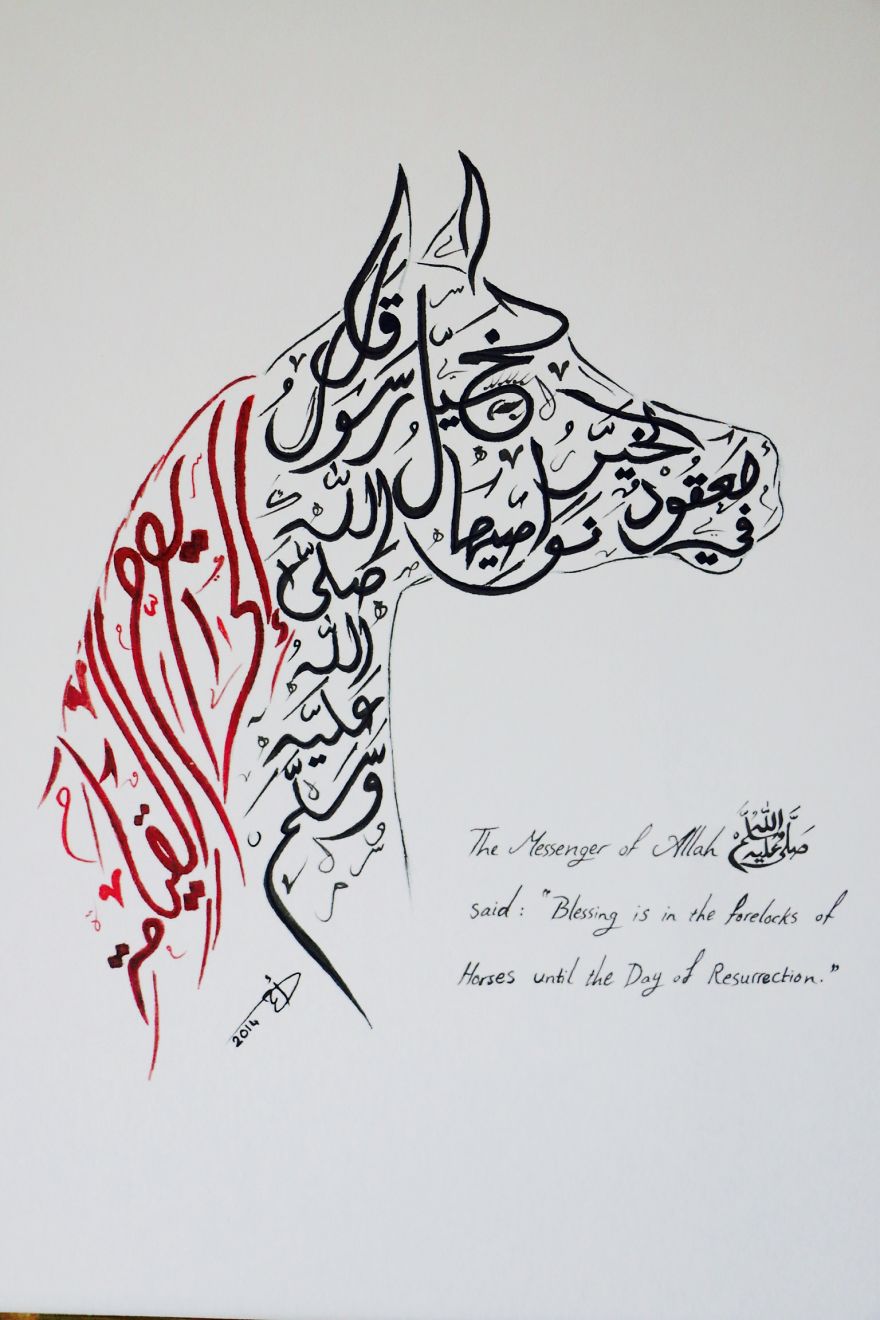 قال
رسول
الله
صلى
الله
عليه
وسلم
الخيل
معقود
في
نواصيها
الخير
إلى
يوم
القيامة
The Messenger of Allah صلى الله عليه وسلم
said: "Blessing is in the forelocks of
Horses until the Day of Resurrection."
2014